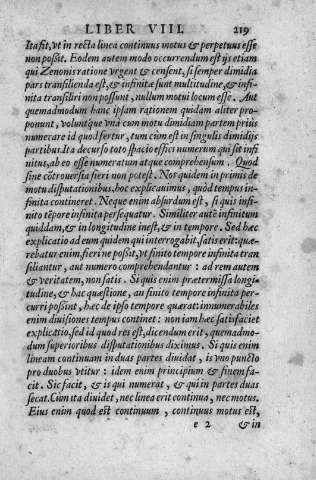 LIBER VIII. 219
Ita fit, vt in recta linea continuus motus & perpetuus esse
non possit. Eodem autem modo occurrendum est ijs etiam
qui Zenonis ratione vrgent & censent, si semper dimidia
pars transilienda est, & infinitæ sunt multitudine, & infi-
nita transiliri non possunt, nullum motui locum esse. Aut
quemadmodum hanc ipsam rationem quidam aliter pro-
ponunt, volunt que vnà cum motu dimidiam partem prius
numerare id quod fertur, tum cùm est in singulis dimidijs
partibus. Ita decurso toto spacio effici numerum qui sit infi
nitus, ab eo esse numeratum atque comprehensum. Quod
sine cōtrouersia fieri non potest. Nos quidem in primis de
motu disputationibus, hoc explicauimus, quòd tempus in-
finita contineret. Neque enim absurdum est, si quis infi-
nito tēpore infinita persequatur. Similiter autē infinitum
quiddam, & in longitudine inest, & in tempore. Sed hæc
explicatio ad eum quidem qui interrogabit, satis erit: quæ-
rebatur enim, fieri ne possit, vt finito tempore infinita tran
siliantur, aut numero comprehendantur: ad rem autem
& veritatem, non satis. Si quis enim prætermissa longi-
tudine, & hac quæstione, an finito tempore infinita per-
curri possint, hæc de ipso tempore quærat: innumerabiles
enim diuisiones tempus continet: non iam hæc satisfaciet
explicatio, sed id quod res est, dicendum erit, quemadmo-
dum superioribus disputationibus diximus. Si quis enim
lineam continuam in duas partes diuidat, is vno puncto
pro duobus vtitur: idem enim principium & finem fa-
cit. Sic facit, & is qui numerat, & qui in partes duas
secat. Cùm ita diuidet, nec linea erit continua, nec motus.
Eius enim quod est continuum, continuus motus est,
e 2 & in